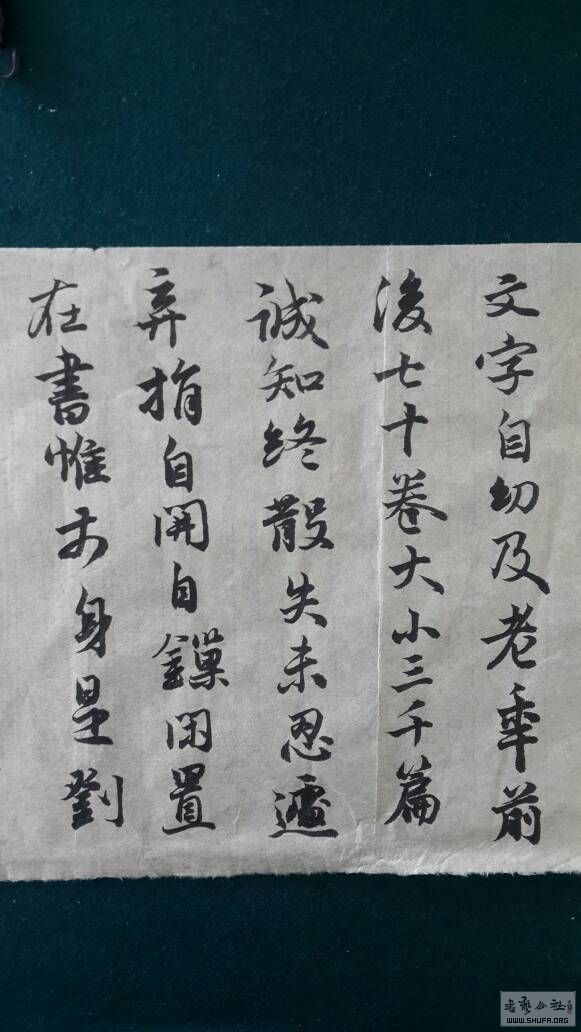 文字自幼及老年前
後七十卷大小三千篇
誠知終散失未忍遽
弃捐自開自鏁閉置
在書帷前身是劉
书艺公社
WWW.SHUFA.ORG